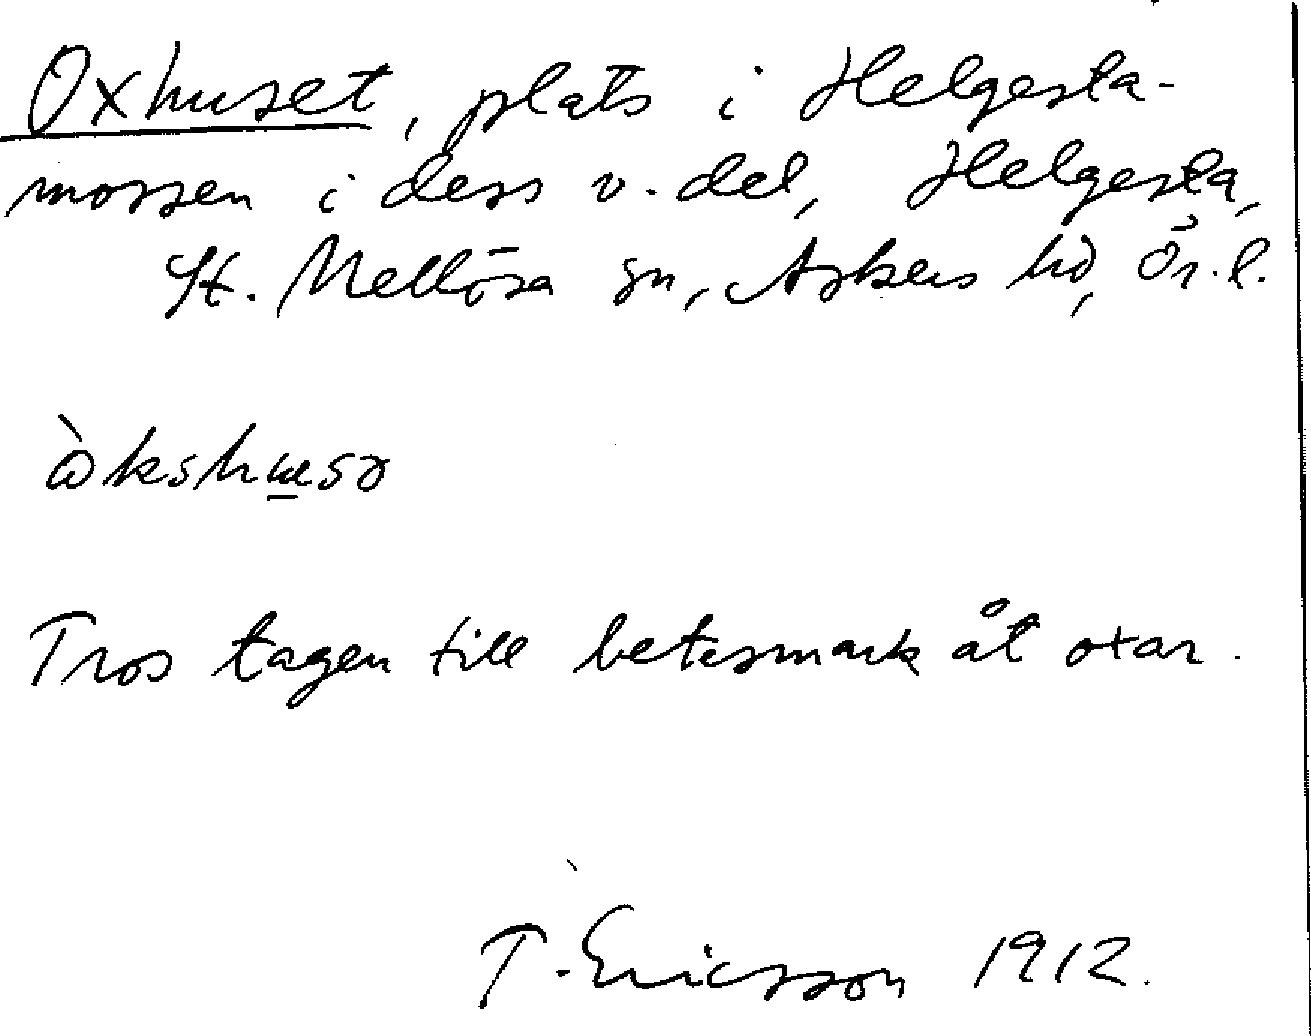 Oxhuset, plats i Helgesta-
mossen i dess v. del, Helgesta,
St. Mellösa sn, Askers hd, Ör. l.
Tros tagen till betesmark åt oxar.
T. Ericsson 1912.